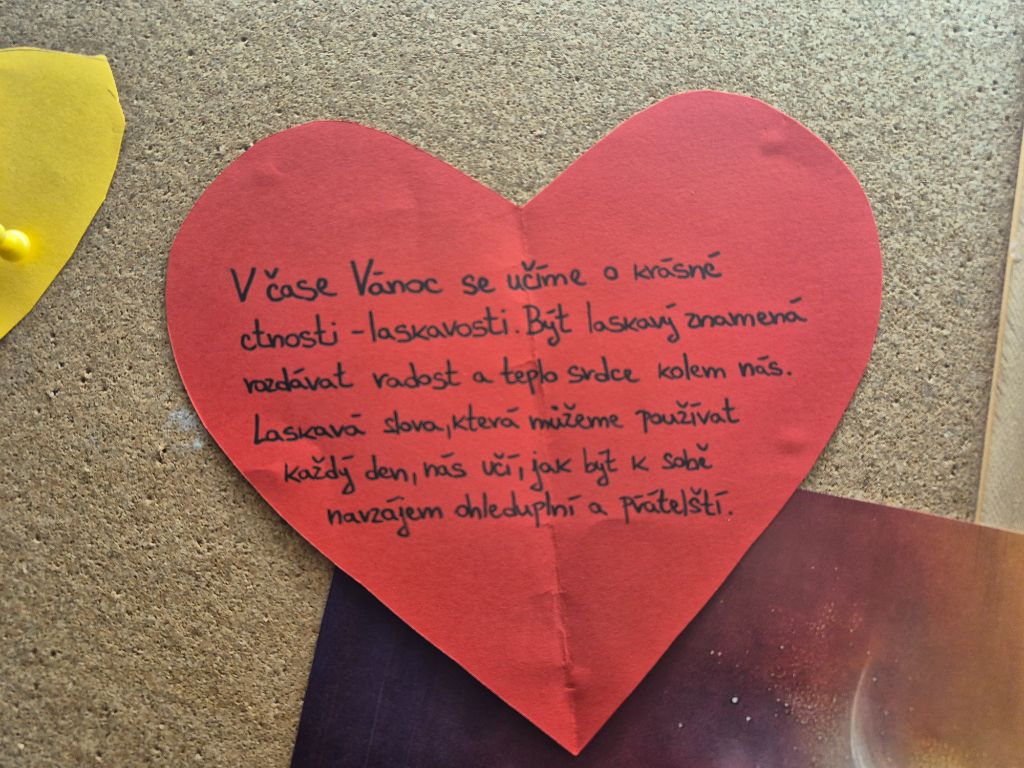 V čase Vánoc se učíme o krásné
ctnosti - laskavosti. Být laskavý znamená
rozdávat radost a teplo srdce kolem nás.
Laskavá slova, která můžeme používat
každý den, nás učí, jak být k sobě
navzájem ohleduplní a přátelští.